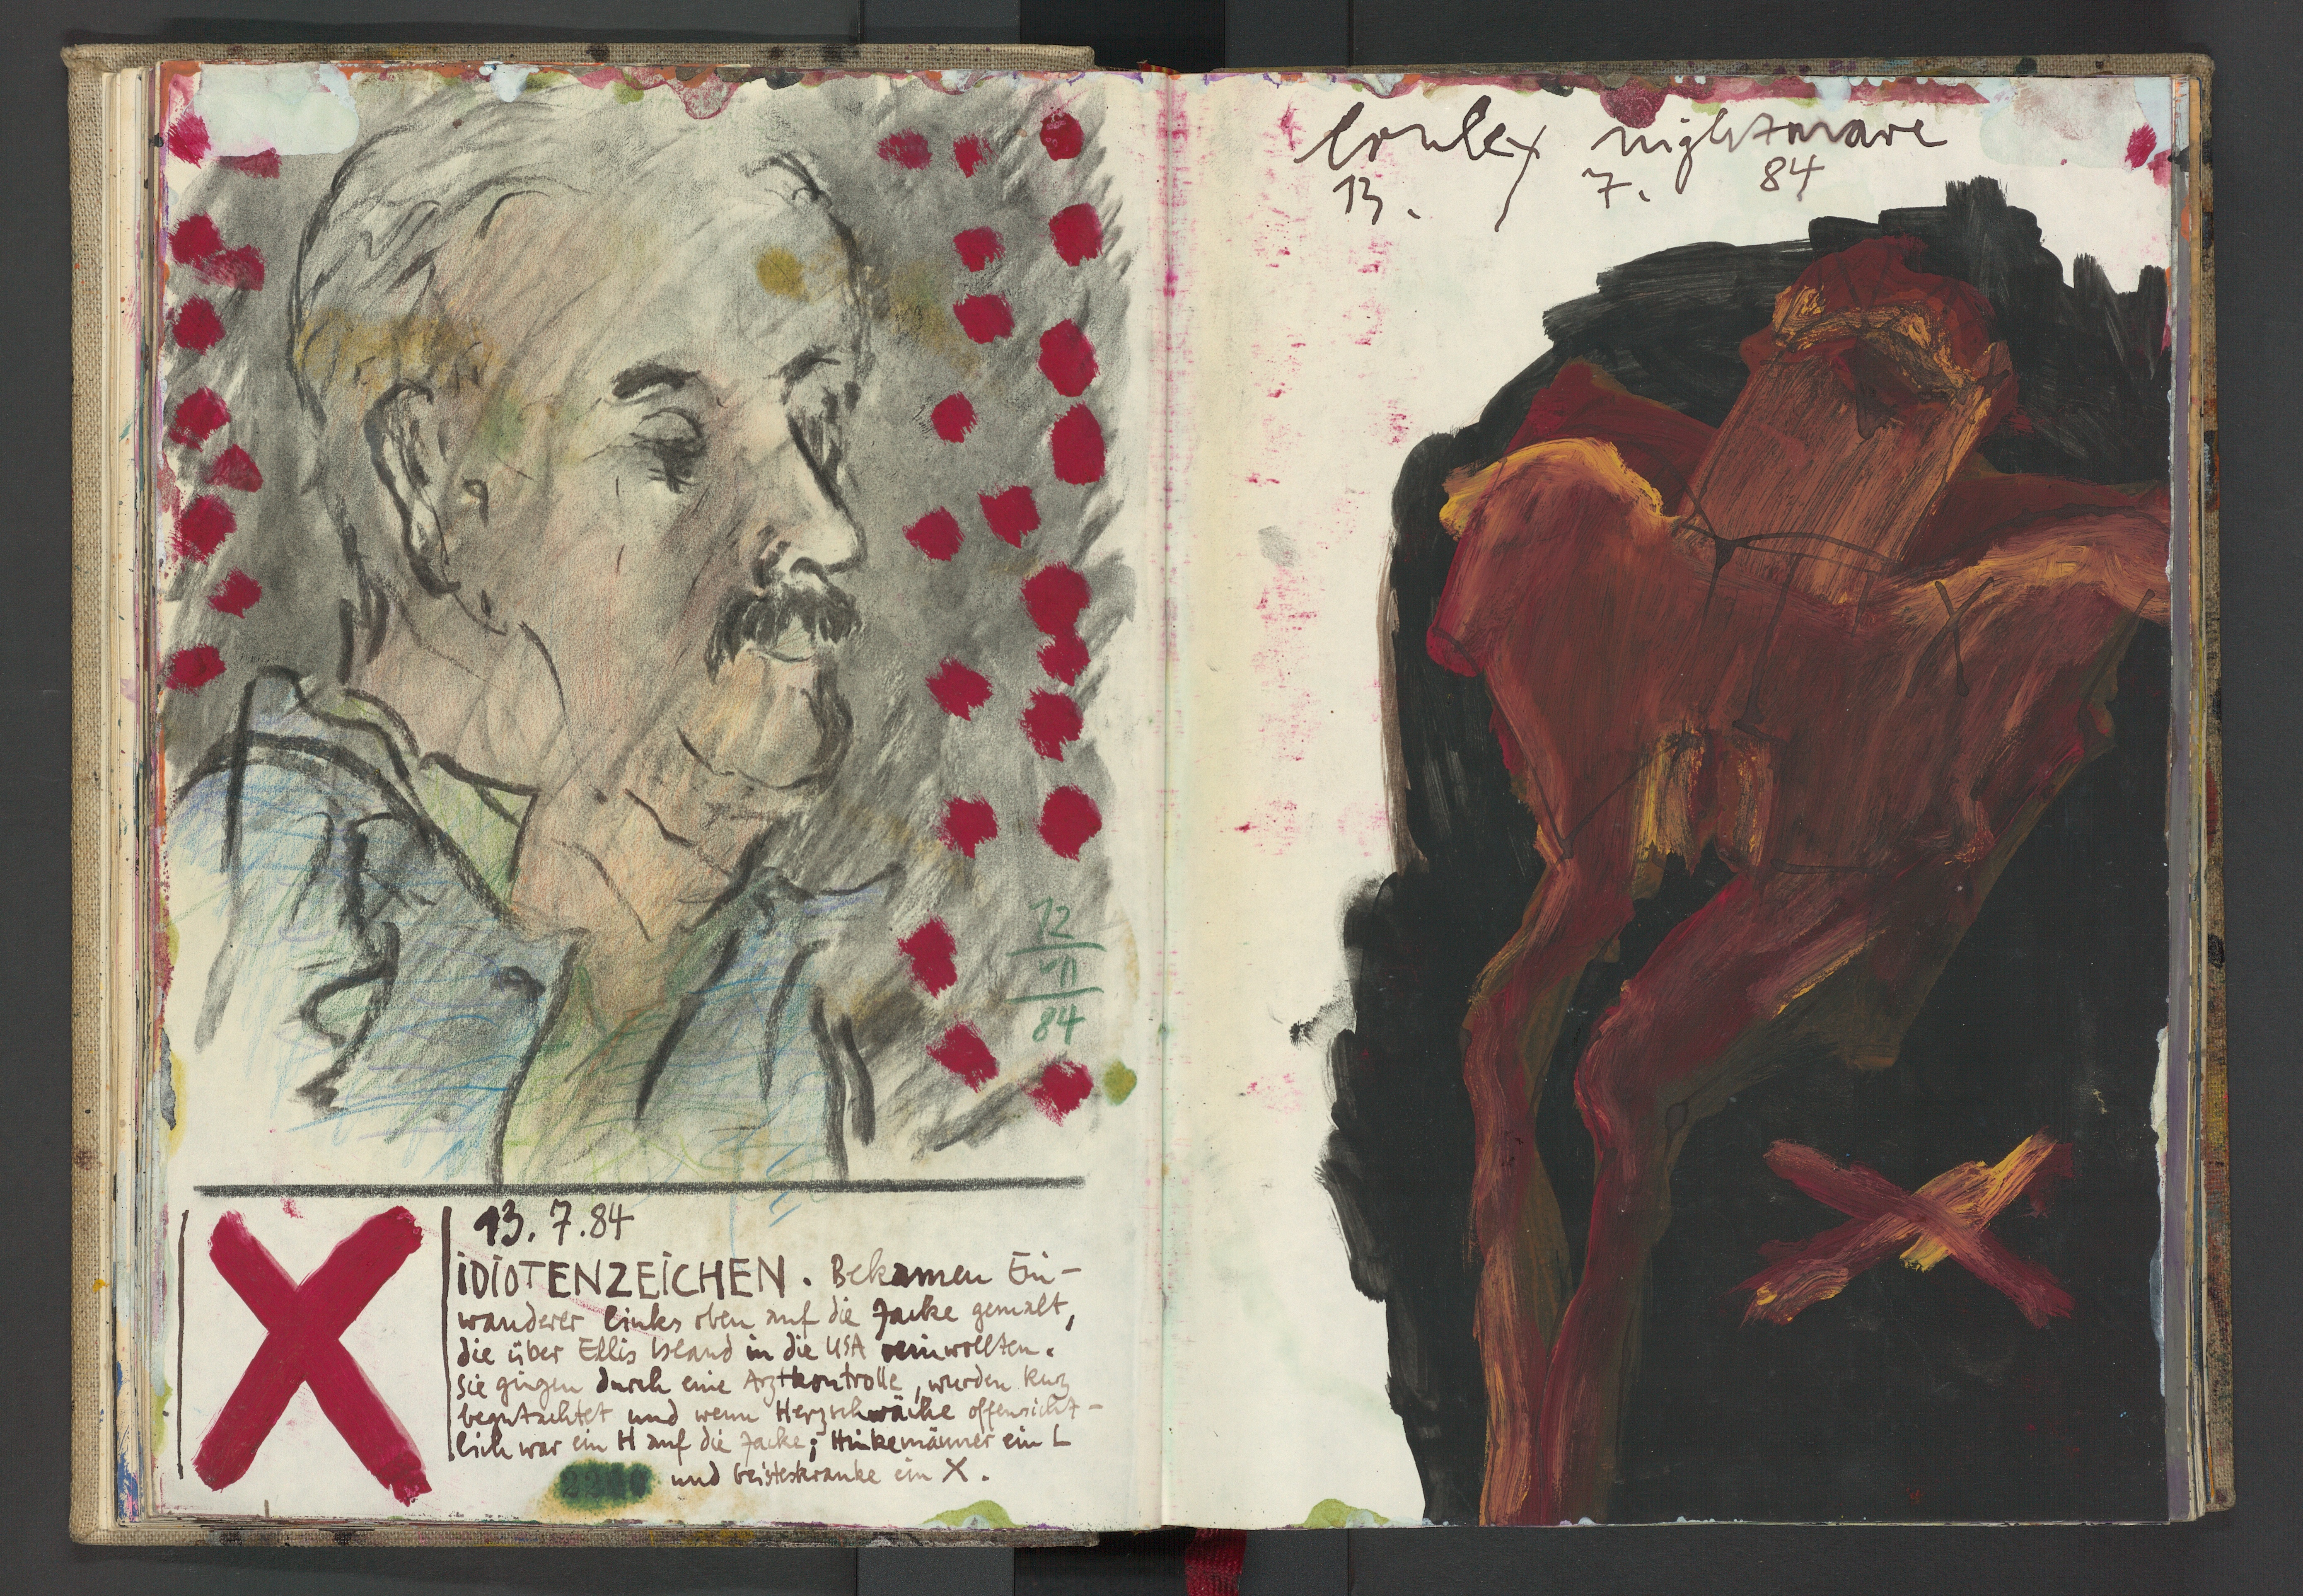 12
VII
84
13. 7. 84
iDiOTENZEiCHEN. Bekamen Ein-
wanderer links oben auf die Jacke gemalt,
die über Ellis Island in die USA reinwollten.
Sie gingen durch eine Arztkontrolle, wurden kurz
begutachtet und wenn Herzschwäche offensicht-
lich war ein H auf die Jacke; Hinkemänner ein L
und Geisteskranke ein X.
nightmare
13. 7. 84